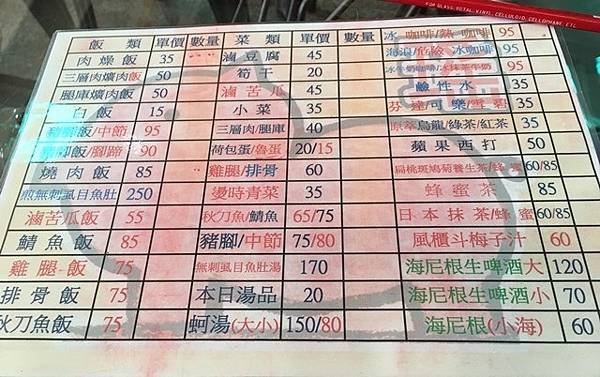 FOR GLASS, METAL, VINYL, CELLULOID, CELLOPHANE, ETC.
飯 類 單價 數量 菜 類 單價 數量 冰 咖啡/熱 咖啡 95
肉燥飯 35 滷豆腐 45 海浪/冒險 冰咖啡 95
三層肉爌肉飯 50 筍干 20 冰牛奶咖啡/冰抹茶牛奶 95
腿庫爌肉飯 50 滷苦瓜 45 鹼性水 35
白飯 15 小菜 35 芬達/可樂/雪碧 35
豬腳飯/中節 95 三層肉/腿庫 40 原萃烏龍/綠茶/紅茶 35
豬腳飯/腳蹄 90 荷包蛋/魯蛋 20/15 蘋果西打 50
燒肉飯 85 雞腿/排骨 60 扁桃斑鳩菊養生茶/蜂蜜 60/85
煎無刺虱目魚肚 250 燙時青菜 35 蜂蜜茶 85
滷苦瓜飯 55 秋刀魚/鯖魚 65/75 日本抹茶/蜂蜜 60/85
鯖魚飯 85 豬腳/中節 75/80 風櫃斗梅子汁 60
雞腿飯 75 無刺虱目魚肚湯 170 海尼根生啤酒大 120
排骨飯 75 本日湯品 20 海尼根生啤酒小 70
秋刀魚飯 75 蚵湯(大小) 150/80 海尼根(小海) 60